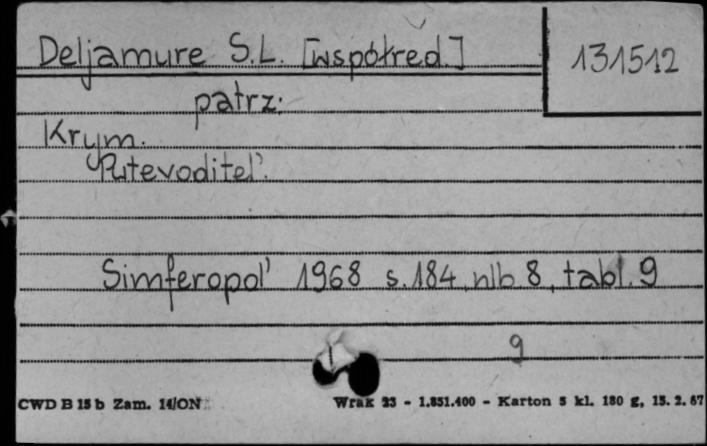 Deljamure S.L. [współred.]
131512
patrz:
Krym.
Putevoditel'.
Simferopol' 1968 s. 184, nlb 8, tabl. 9
9
CWD B 15 b Zam. 14/ON
Wrak 23 - 1.851.400 - Karton 5 kl. 180 g, 15. 2. 67